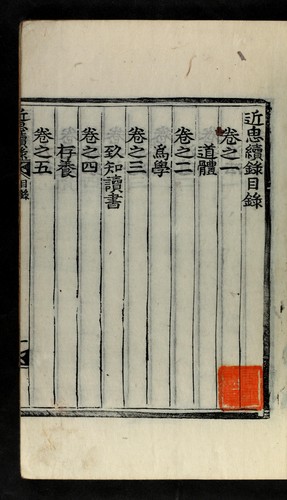 近思續錄目錄
卷之一
道體
卷之二
爲學
卷之三
致知讀書
卷之四
存養
卷之五
近思續錄
目錄